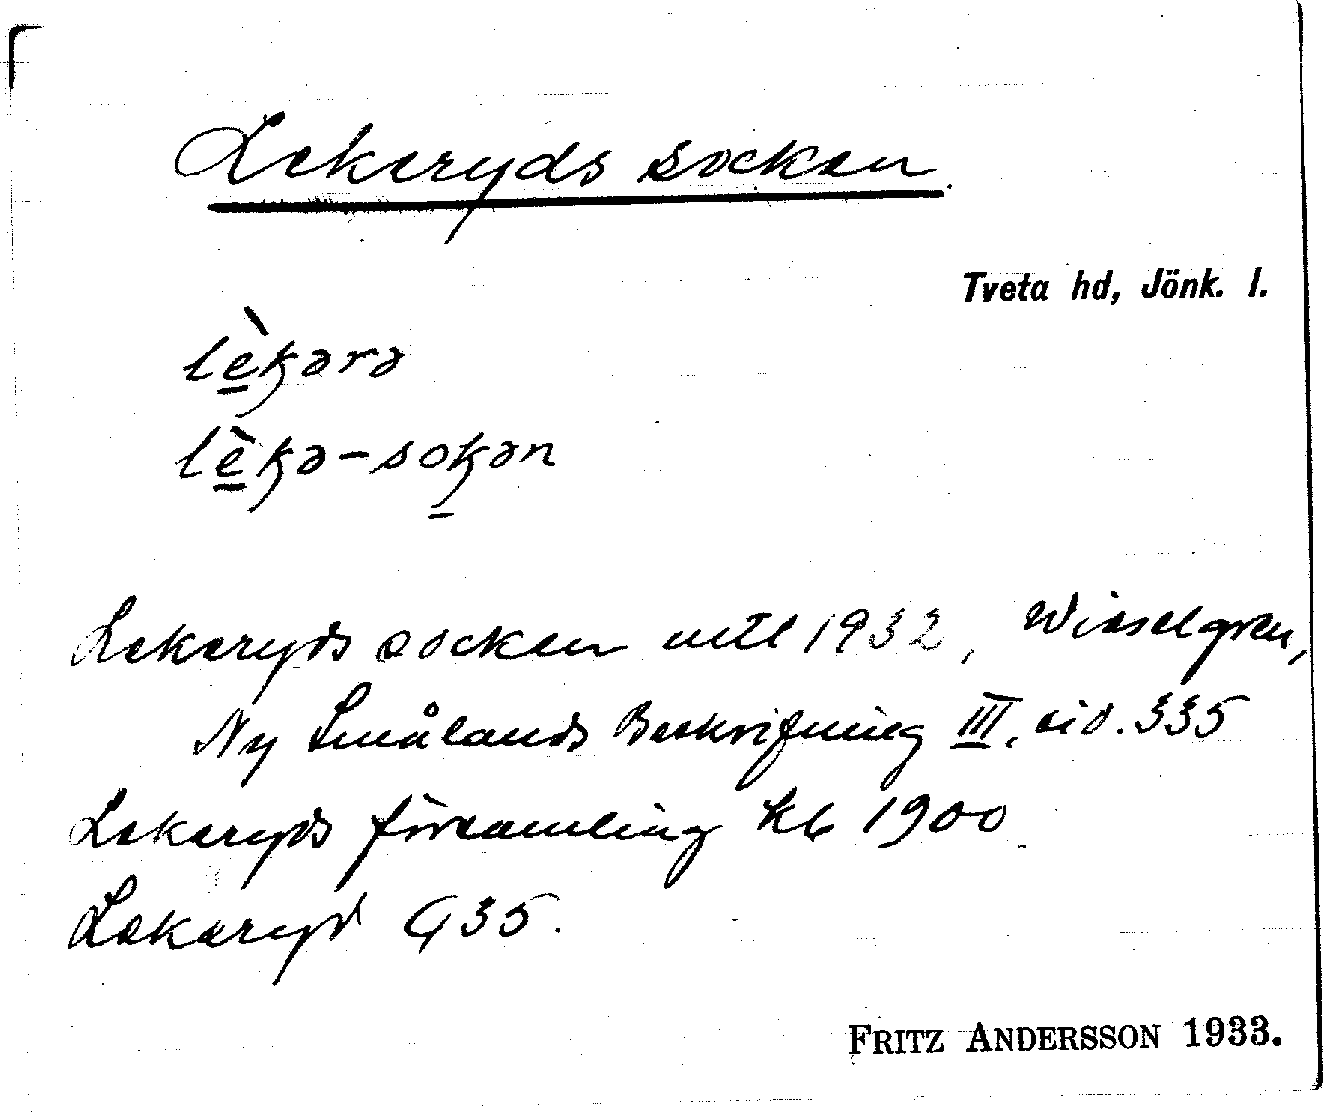 Lekeryds socken
Tveta hd, Jönk. l.
lèkərə
lèkə-sokən
Lekeryds socken mtl 1932, Wieselgren,
Ny Smålands Beskrifning III, sid. 335
Lekeryds församling kb 1900
Lekeryd G 35.
FRITZ ANDERSSON 1933.